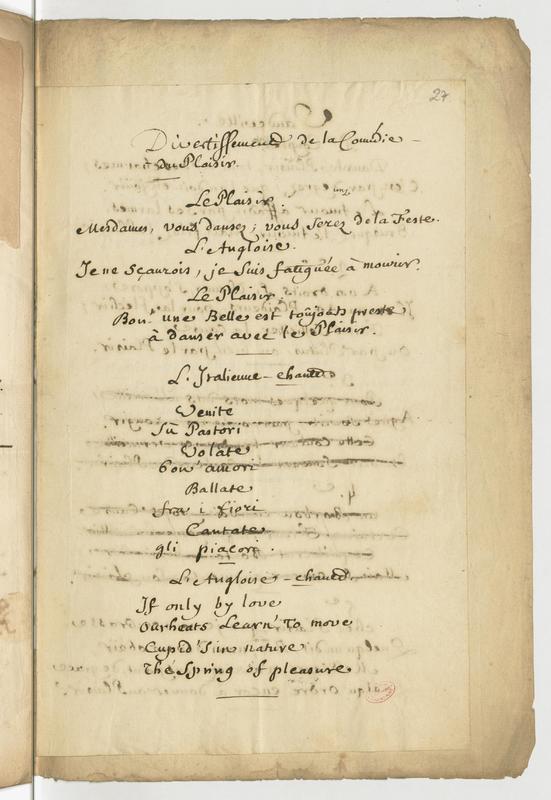 27
Divertissement de la Comedie
du Plaisir.
Le Plaisir.
Mesdames, vous dansez; vous serez de la Feste.
L'Angloise.
Je ne sçaurois, je suis fatiguée à mourir.
Le Plaisir.
Bon! une Belle est toujours preste
à danser avec le Plaisir.
L'Italienne - chante
Venite
sù Pastori
Volate
bon' amori
Ballate
fra i fiori
Cantate
gli piaceri.
L'Angloise - chante
If only by love
our heats Learn' To move
Cupid's in nature
The Spring of pleasure